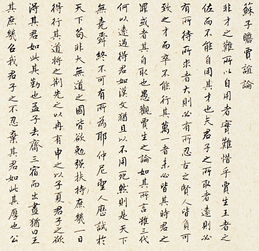 蘇子瞻賈誼論
非才之難所以自用者實難惜乎賈生王者之
佐而不能自用其才也夫君子之所取者遠則必
有所待所就者大則必有所忍古之賢人皆負可
致之才而卒不能行其萬一者未必皆其時君之
罪或者其自取也愚觀賈生之論如其所言雖三代
何以遠過得君如漢文猶且以不用死然則是天下
無堯舜終不可有所為耶仲尼聖人歷試於
天下苟非大無道之國皆欲勉強扶持庶幾一日
得行其道將之荊先之以冉有申之以子夏君子之欲
得其君如此其勤也孟子去齊三宿而後出晝猶曰王
其庶幾召我君子之不忍棄其君如此其厚也公